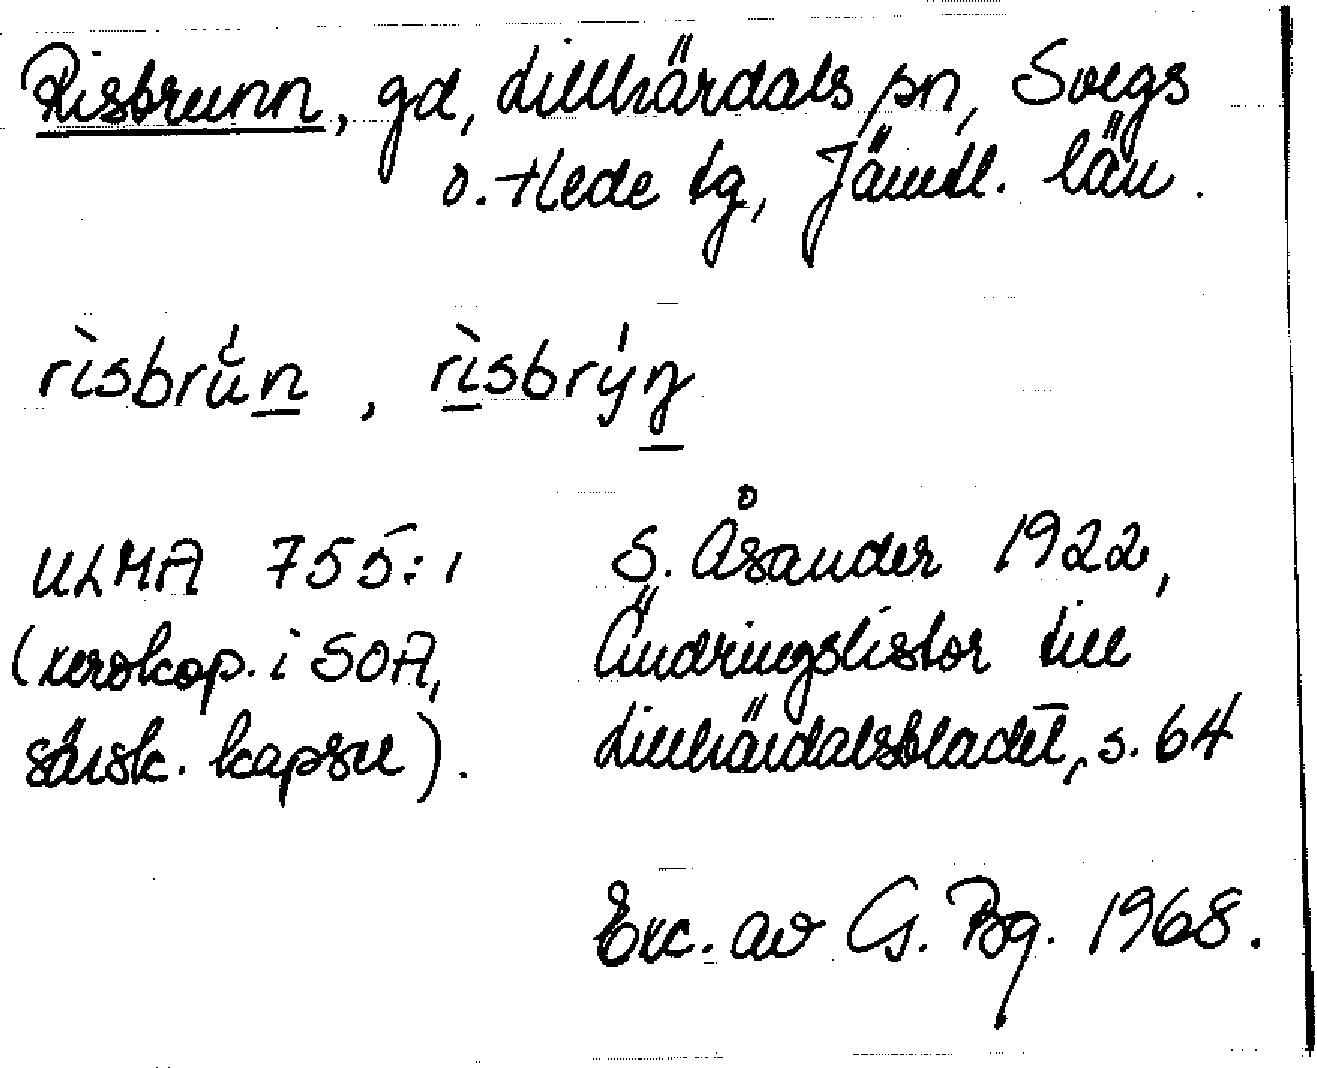 Risbrunn, gd, Lillhärdals sn, Svegs
o. Hede tg, Jämtl. län.
rìsbrún, rìsbrýn
ULMA 755:1
(xerokop. i SOA,
särsk. kapsel).
S. Åsander 1922,
Ändringslistor till
Lillhärdalsbladet, s. 64
Exc. av G. Bg. 1968.